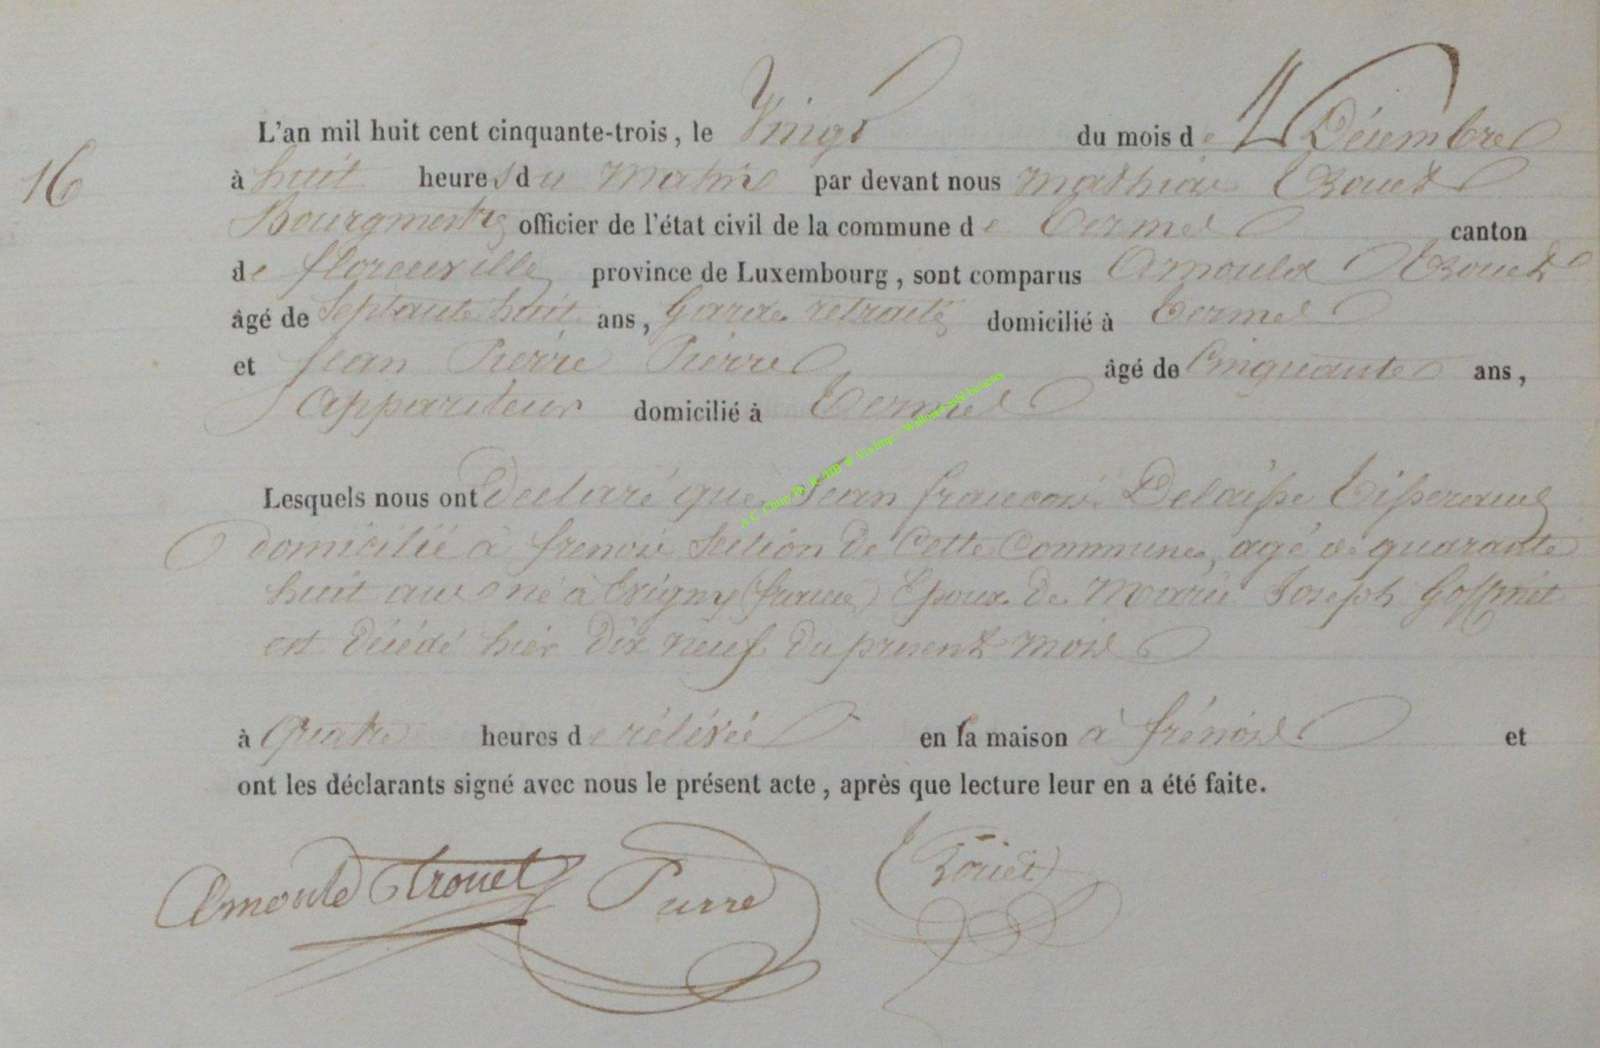 16
L'an mil huit cent cinquante-trois, le Vingt du mois de Décembre
à huit heures du matin par devant nous Mathieu Trouet
Bourgmestre officier de l'état civil de la commune de Termes canton
de florenville province de Luxembourg, sont comparus Arnould Trouet
âgé de Septante huit ans, Garde retraité domicilié à Termes
et Jean Pierre Pierre âgé de Cinquante ans,
Appariteur domicilié à Termes
Lesquels nous ont declaré que Jean francois Delaisse Tisserand
domicilié à frenois Section de Cette Commune, agé de quarante
huit ans né à (france) Epoux de Marie Joseph
est décédé hier dix neuf du présent mois
à Quatre heures de rélévée en sa maison à frénois et
ont les déclarants signé avec nous le présent acte, après que lecture leur en a été faite.
Arnould Trouet Pierre Trouet